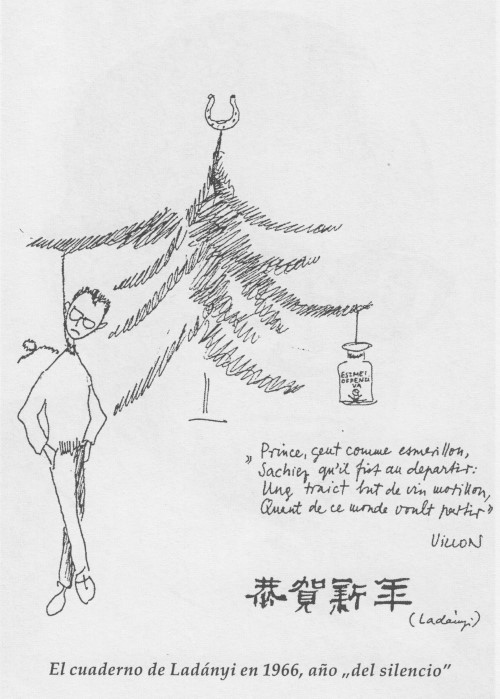 ESZMEI
OFFENZI
VA
» Prince, gent comme esmerillon,
Sachiez qu'il fist au departir:
Ung traict but de vin morillon,
Quant de ce monde voult partir »
VILLON
恭賀新年
(Ladányi)
El cuaderno de Ladányi en 1966, año „del silencio”